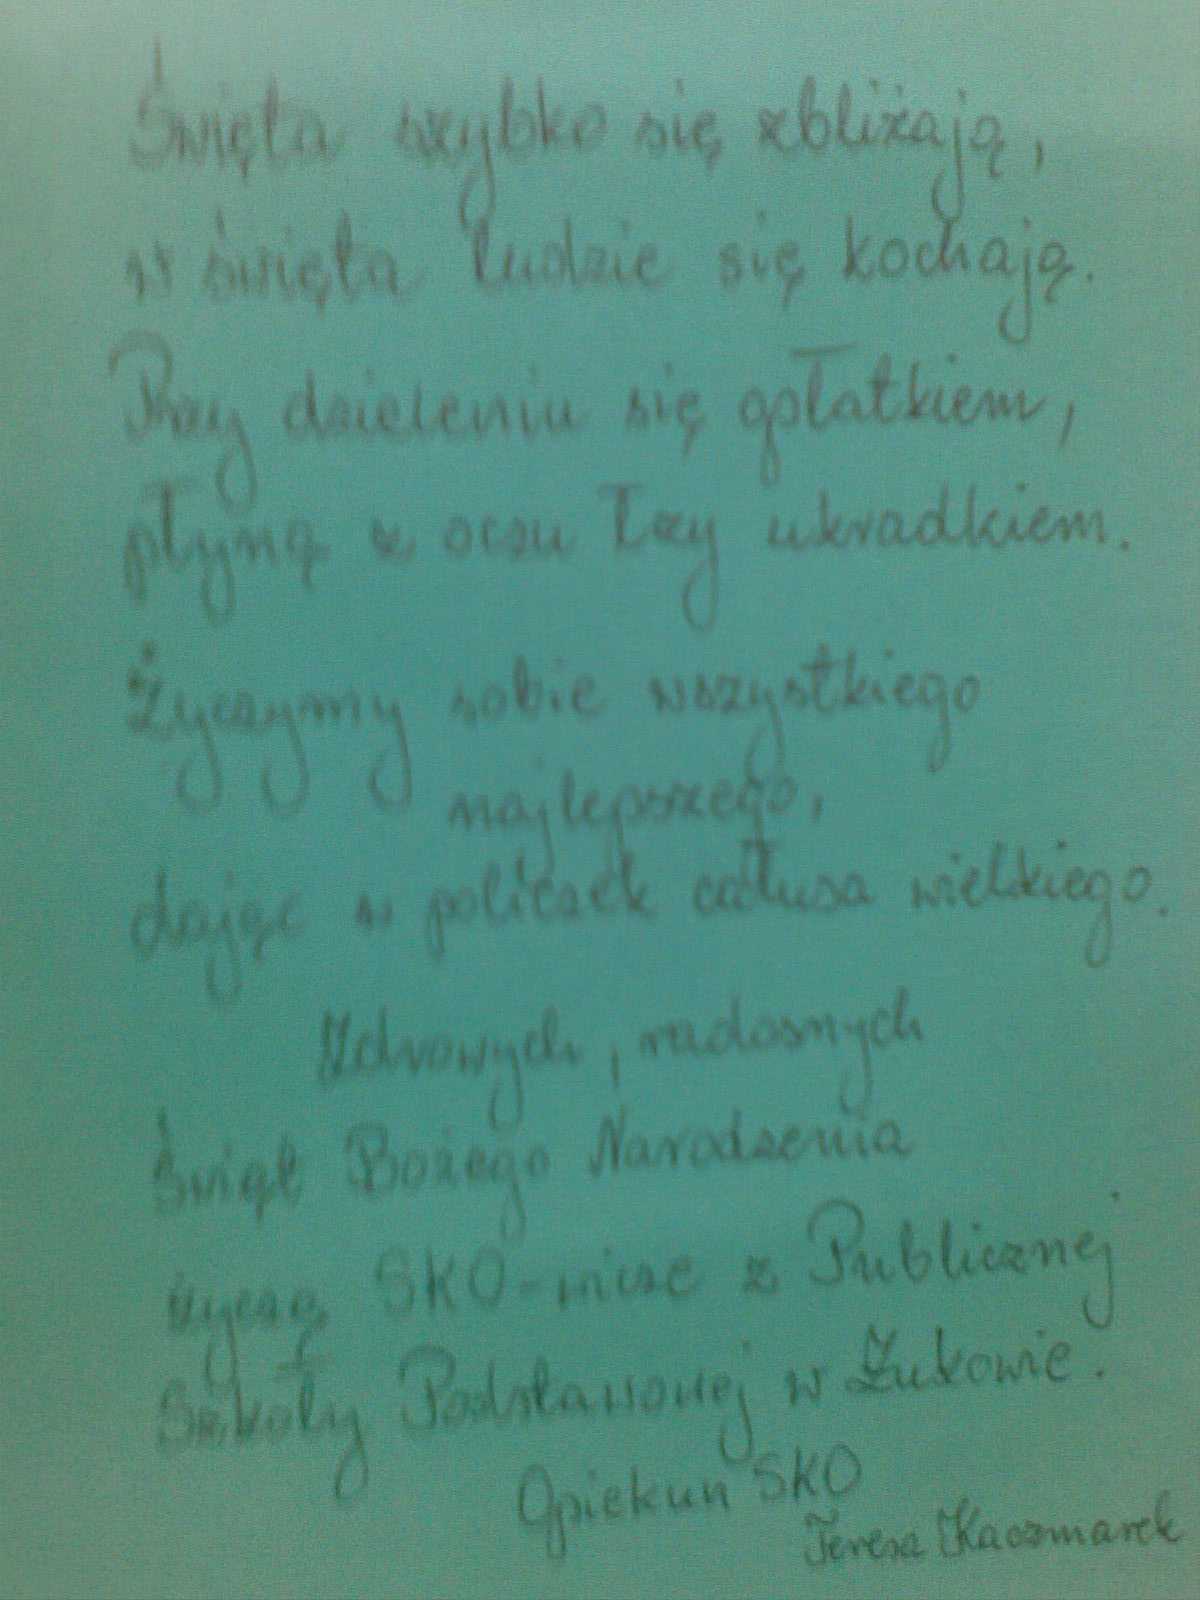 Święta szybko się zbliżają,
w święta ludzie się kochają.
Przy dzieleniu się opłatkiem,
płyną z oczu łzy ukradkiem.
Życzymy sobie wszystkiego
najlepszego,
dając w policzek całusa wielkiego.
Zdrowych, radosnych
Świąt Bożego Narodzenia
życzą SKO-wicze z Publicznej
Szkoły Podstawowej w Żukowie.
Opiekun SKO
Teresa Kaczmarek